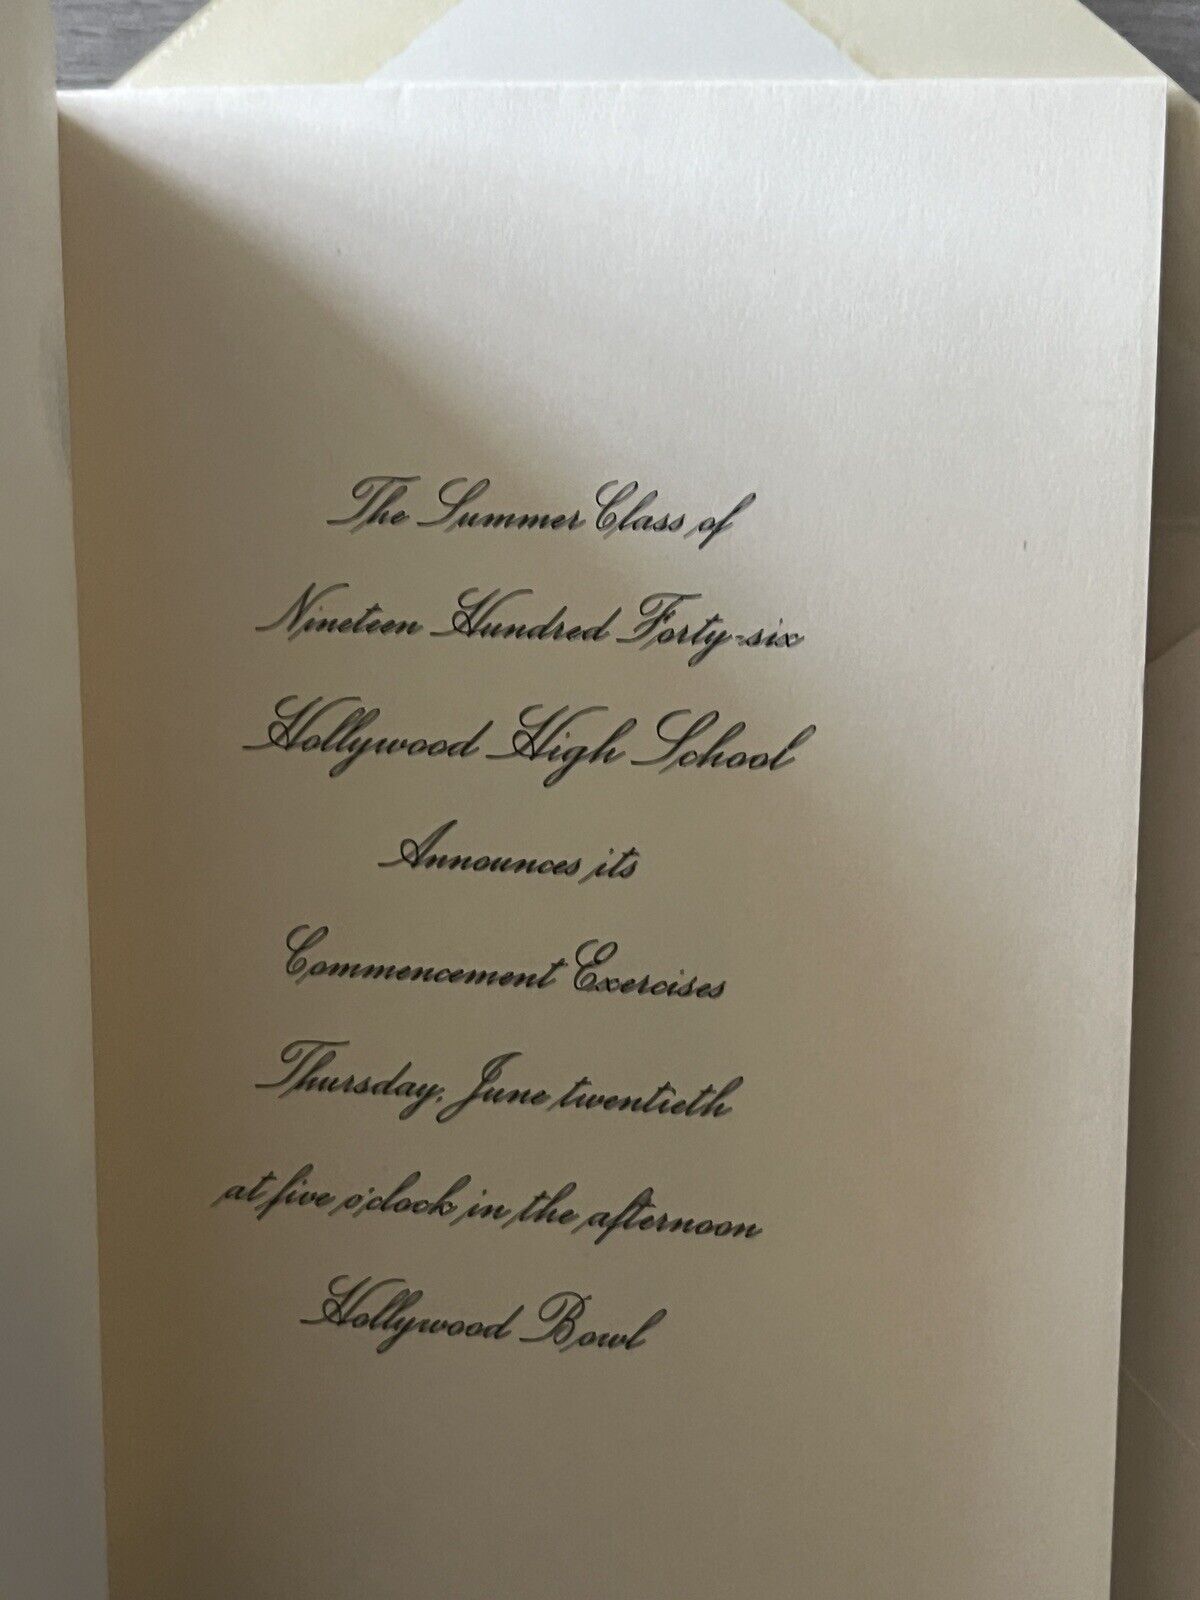 The Summer Class of
Nineteen Hundred Forty-six
Hollywood High School
Announces its
Commencement Exercises
Thursday, June twentieth
at five o'clock in the afternoon
Hollywood Bowl